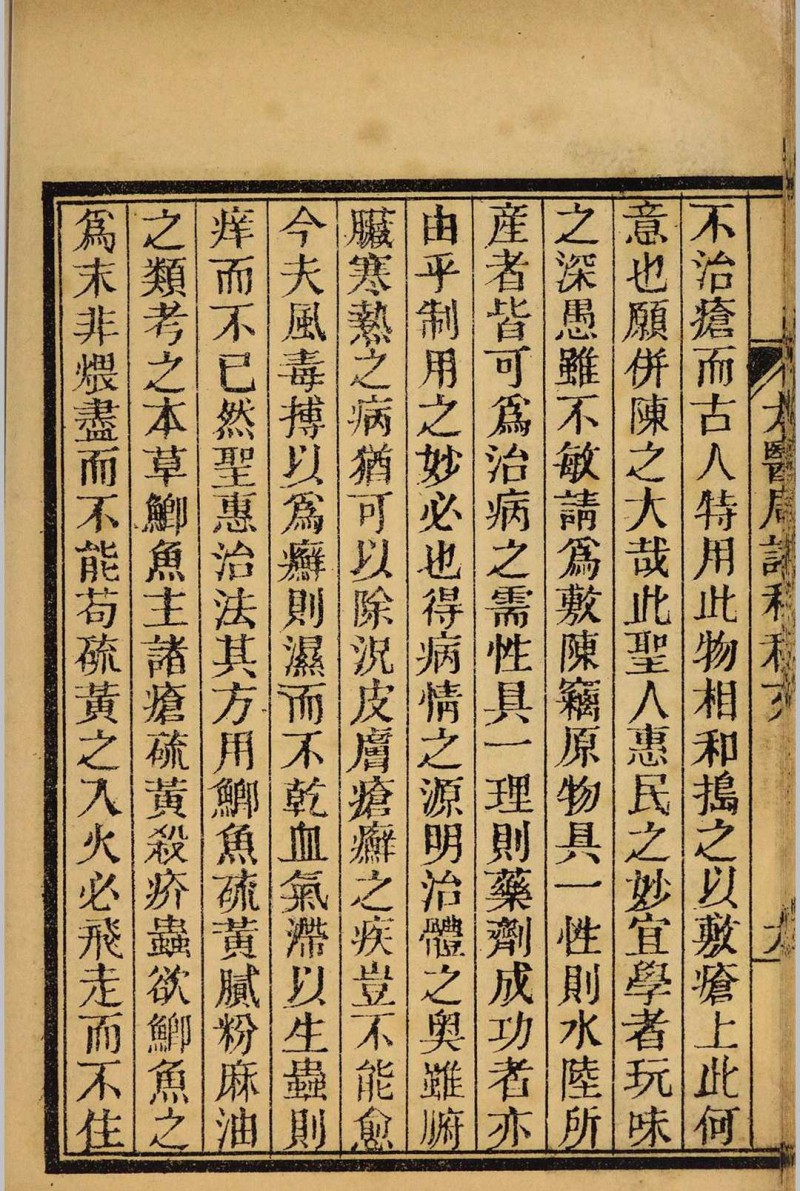 不治瘡而古人特用此物相和搗之以敷瘡上此何
意也願併陳之大哉此聖人惠民之妙宜學者玩味
之深愚雖不敏請爲敷陳竊原物具一性則水陸所
産者皆可爲治病之需性具一理則藥劑成功者亦
由乎制用之妙必也得病情之源明治體之奥雖腑
臟寒熱之病猶可以除況皮膚瘡癬之疾豈不能愈
今夫風毒搏以爲癬則濕而不乾血氣滯以生蟲則
痒而不已然聖惠治法其方用鯽魚硫黄膩粉麻油
之類考之本草鯽魚主諸瘡硫黄殺疥蟲欲鯽魚之
爲末非煨盡而不能苟硫黄之入火必飛走而不住